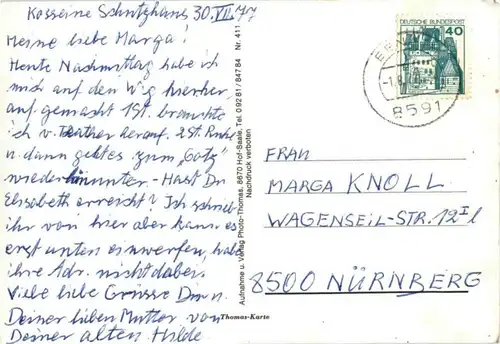 Kosseine Schutzhaus 30.VII.77
Meine liebe Marga!
Heute Nachmittag habe ich
mich auf den Weg hierher
aufgemacht 1St. brauchte
ich v. herauf. 2St. Ruhe
u. dann geht es zum „Götz"
wieder hinunter - Hast Du
Elisabeth erreicht? Ich schrieb
ihr von hier aber kann es
erst unten einwerfen, habe
ihre Adr. nicht dabei.
Viele liebe Grüsse Dir u.
Deiner lieben Mutter von
Deiner alten Hilde
Aufnahme u. Verlag Photo-Thomas, 8670 Hof-Saale, Tel. 0 92 81 / 847 84 Nr. 411
Nachdruck verboten
Thomas-Karte
DEUTSCHE BUNDESPOST
40
8591
FRAU
MARGA KNOLL
WAGENSEIL-STR. 12 I l
8500 NÜRNBERG